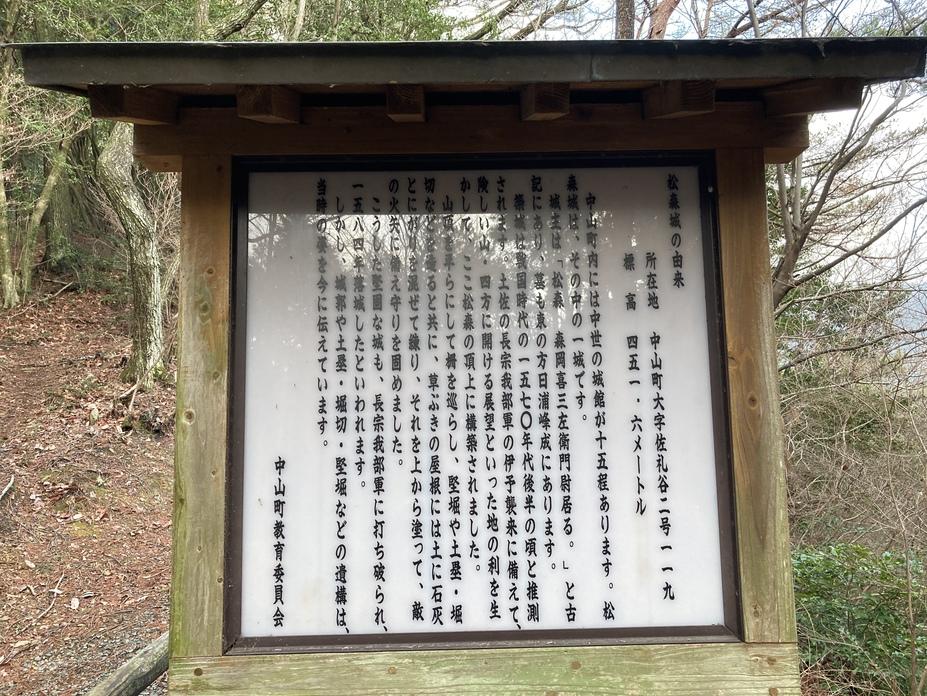 松森城の由来
所在地 中山町大字佐礼谷二号一一九
標 高 四五一・六メートル
中山町内には中世の城館が十五程あります。松
森城は、その中の一城です。
城主は「松森 森岡喜三左衛門尉居る。」と古
記にあり、墓も東の方日浦峰成にあります。
築城は戦国時代の一五七〇年代後半の頃と推測
されます。土佐の長宗我部軍の伊予襲来に備えて、
険しい山、四方に開ける展望といった地の利を生
かして、ここ松森の頂上に構築されました。
山頂を平らにして柵を巡らし、堅堀や土塁・堀
切などを造ると共に、草ぶきの屋根には土に石灰
とにがりを混ぜて練り、それを上から塗って、敵
の火矢に備え守りを固めました。
こうした堅固な城も、長宗我部軍に打ち破られ、
一五八四年落城したといわれます。
しかし、城郭や土塁・堀切・堅堀などの遺構は、
当時の姿を今に伝えています。
中山町教育委員会